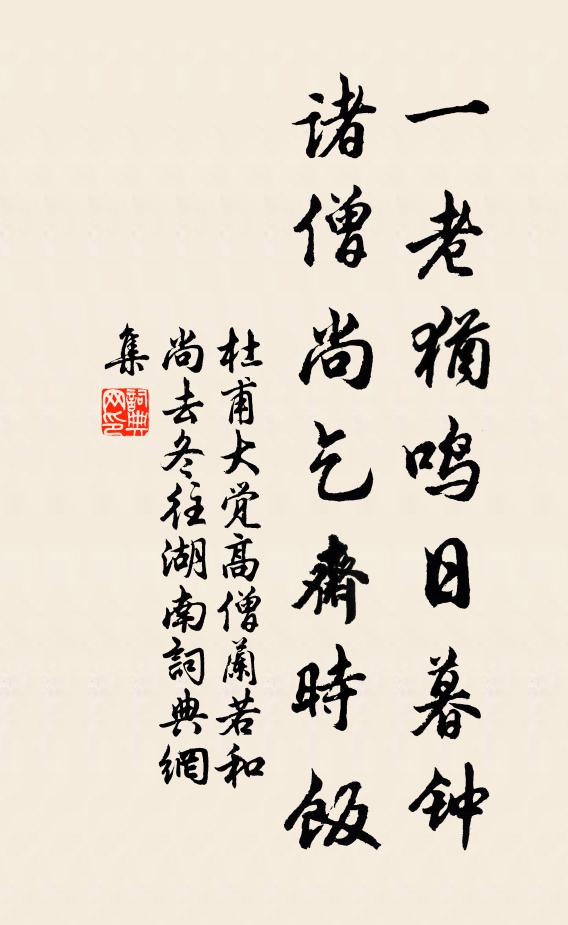 一老犹鸣日暮钟
諸僧尚乞齋時飯
杜甫大觉高僧蘭若和
尚去冬往湖南詞典網
集
詞典
网印